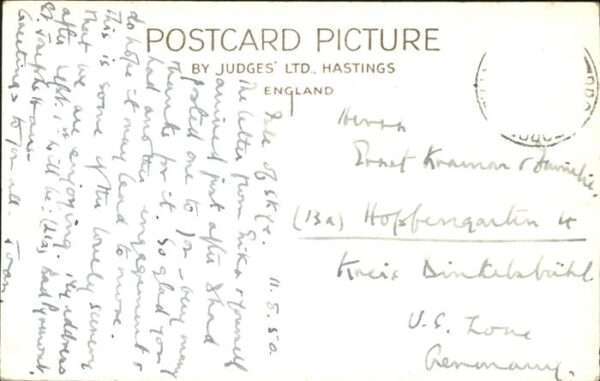 POSTCARD PICTURE
BY JUDGES' LTD., HASTINGS
ENGLAND
Isle of Skye. 11.5.50
The letter from Erika & yourself
arrived just after I had
posted one to you – very many
thanks for it. So glad you
had another engagement &
do hope it may lead to more.
This is some of the lovely scenery
that we are enjoying. My address
after Sept. 1st will be: (21a) Bad Pyrmont.
Greetings to you all. Joan.
Herrn
Ernst Kramer & Familie,
(13a) Hopfengarten 4
Kreis Dinkelsbühl
U.S. Zone
Germany.